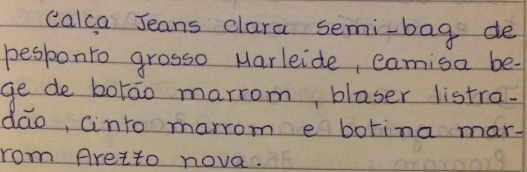 Calça Jeans clara semi-bag de
pesponto grosso Marleide, camisa be-
ge de botão marrom, blaser listra-
dão, cinto marrom e botina mar-
rom Arezzo nova.